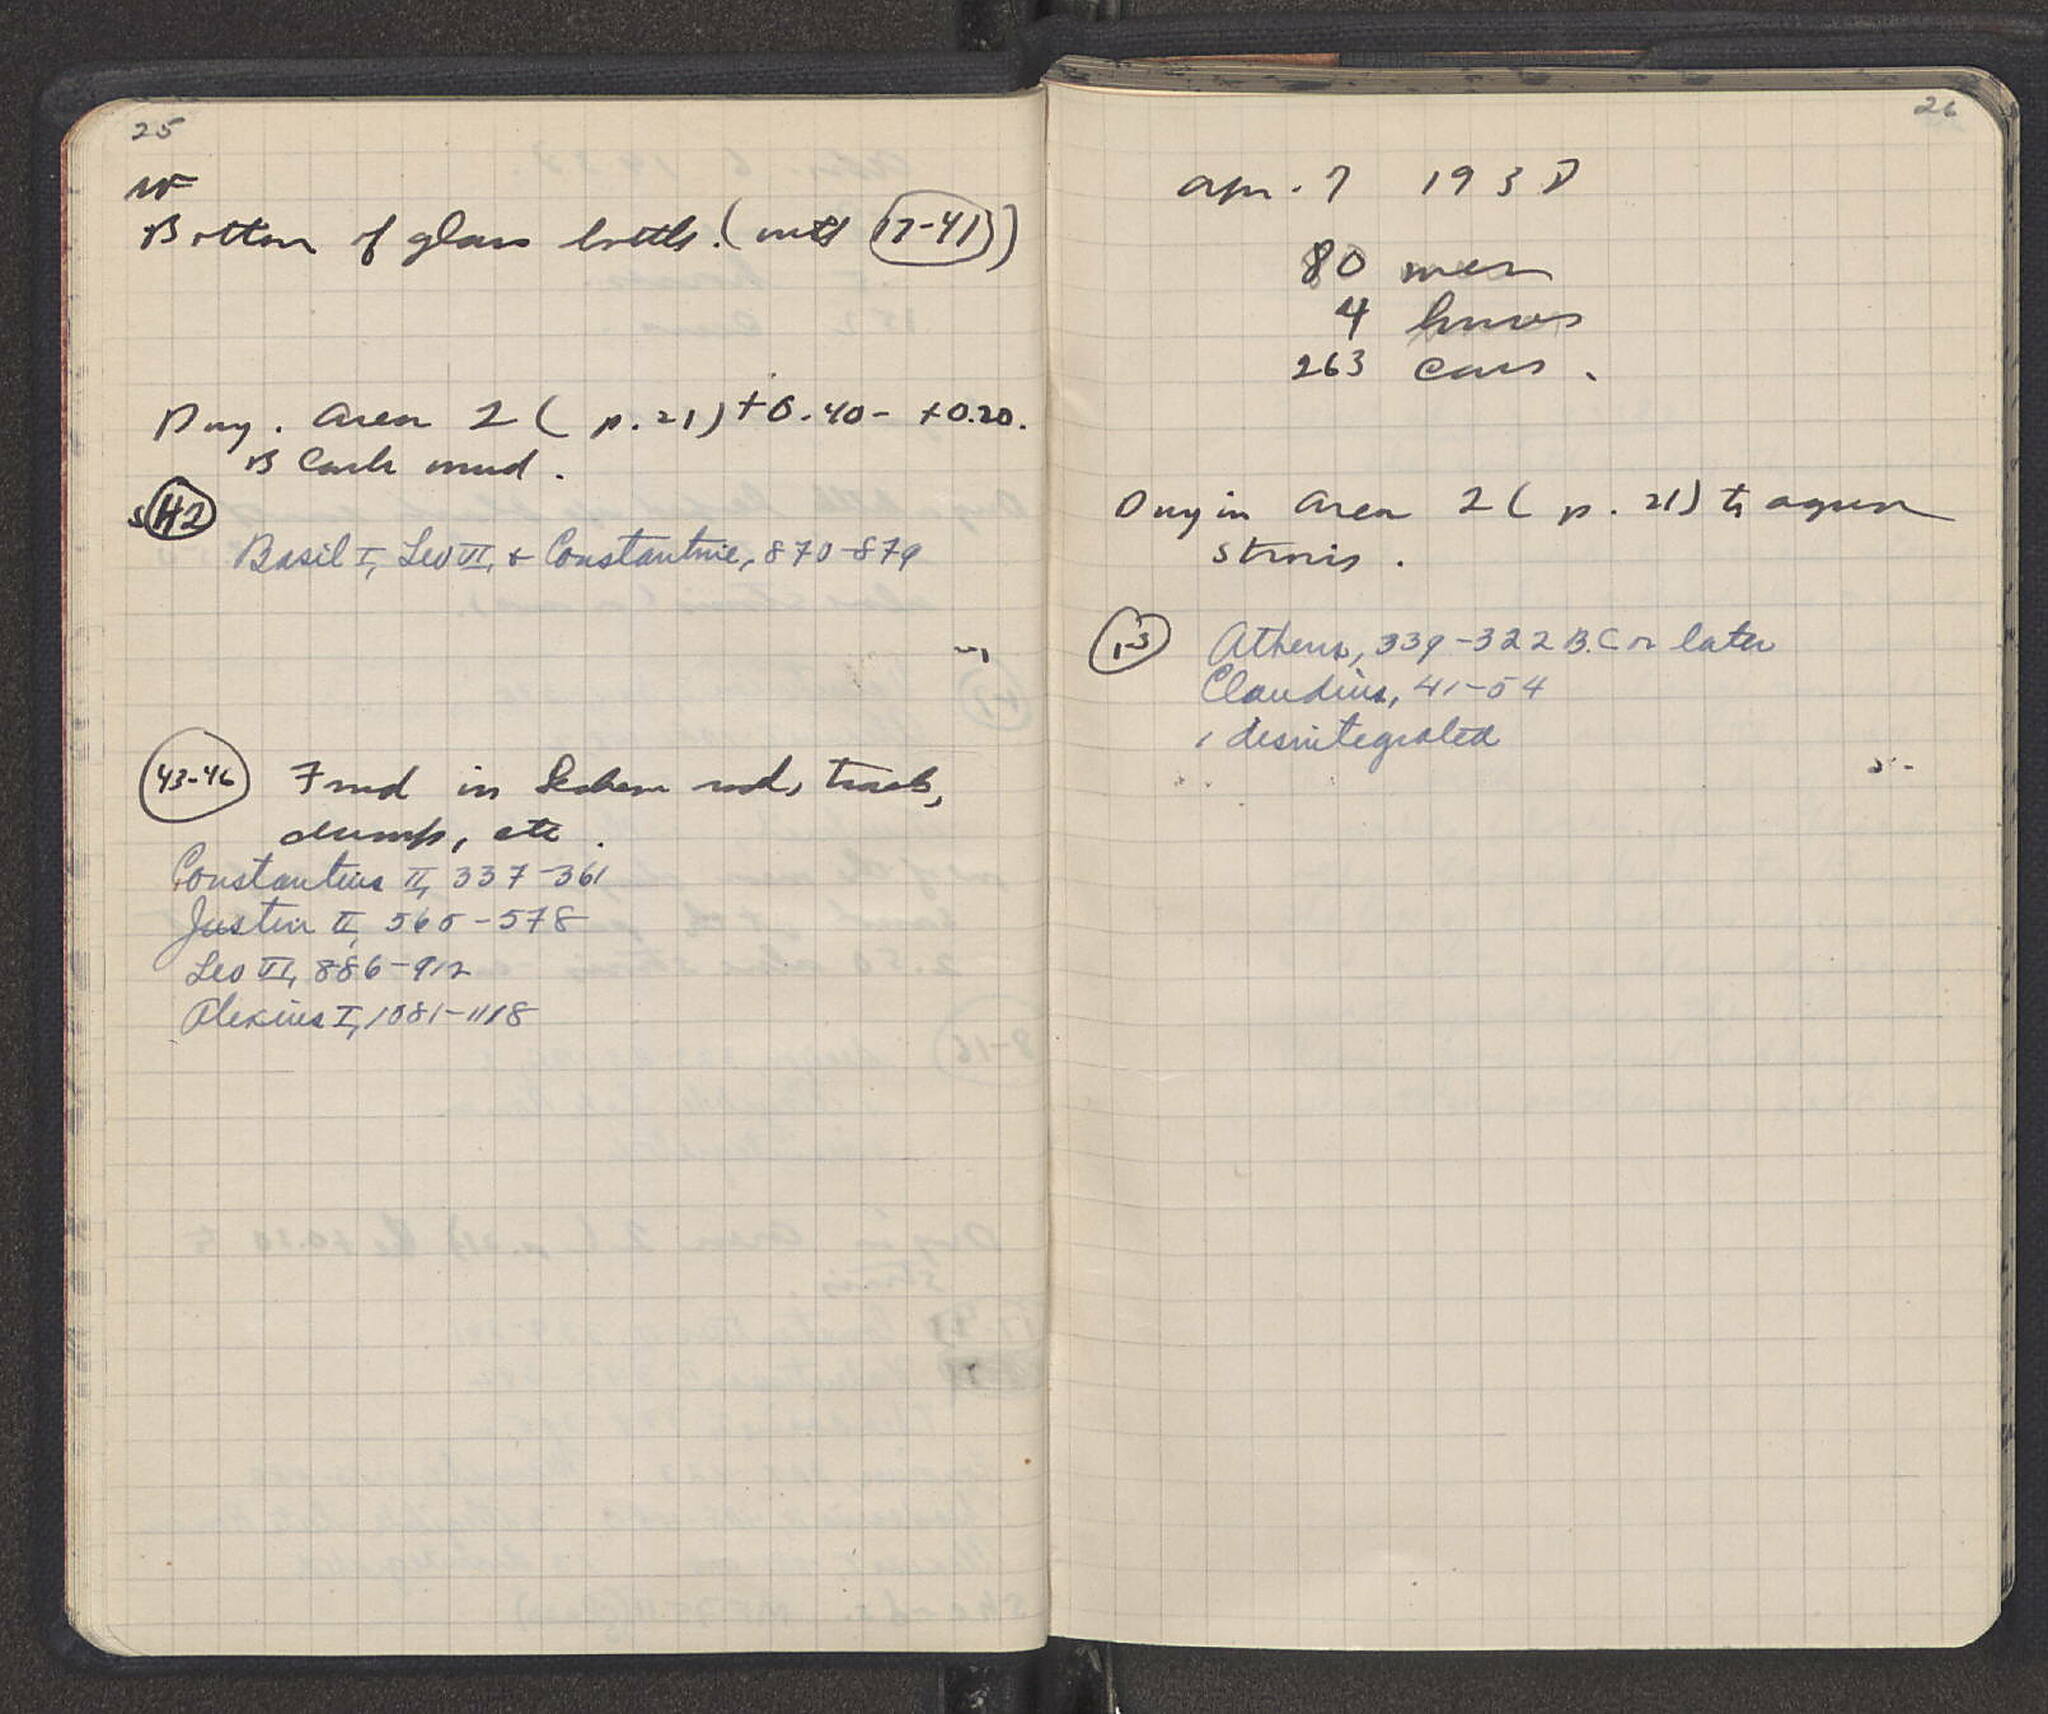 25
w
Bottom of glass bottle. (with 17-41)
Dug. Area 2 (p. 21) +0.40- +0.20.
Black mud.
42
Basil I, Leo VI, & Constantine, 870-879
43-46 Found in Lechem rod, track,
dump, etc.
Constantius II, 337-361
Justin II, 565-578
Leo VI, 886-912
Alexius I, 1081-1118
26
Apr. 7 1938
80 men
4 horses
263 cars.
Dug in Area 2 (p. 21) to agora
stones.
1-3 Athens, 339-322 B.C or later
Claudius, 41-54
1 disintegrated